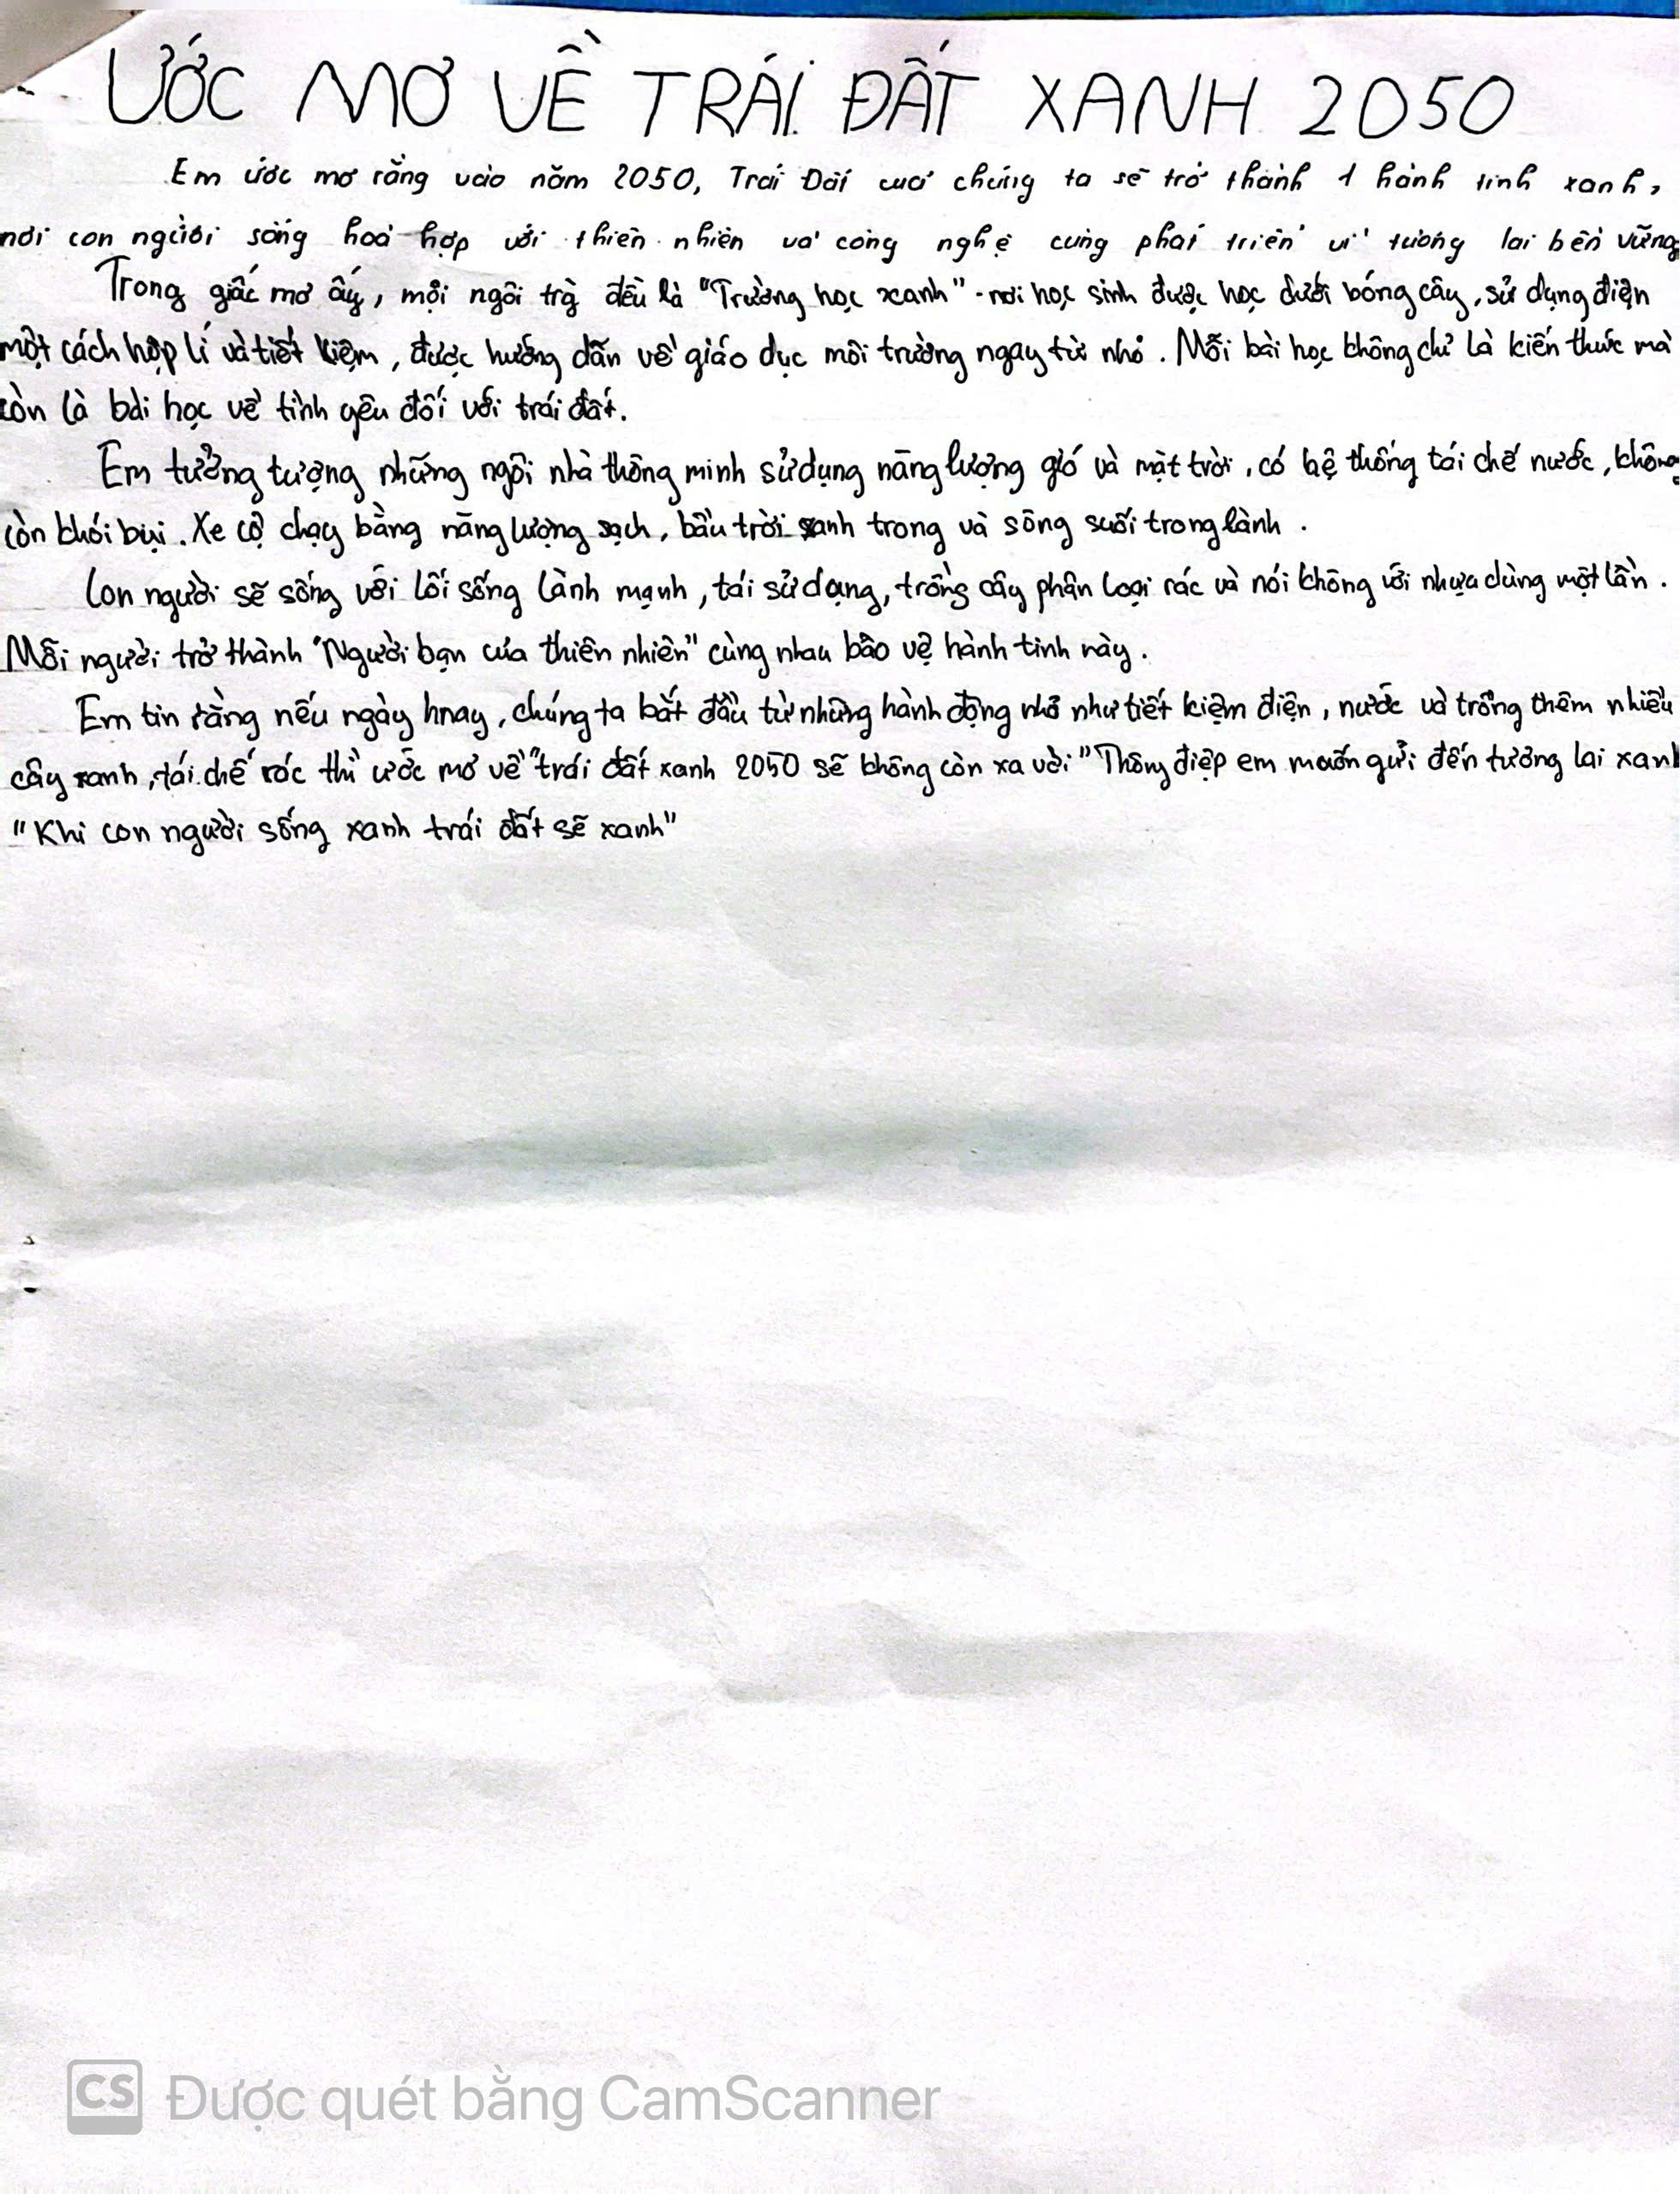 ƯỚC MƠ VỀ TRÁI ĐẤT XANH 2050
Em ước mơ rằng vào năm 2050, Trái Đất của chúng ta sẽ trở thành 1 hành tinh xanh,
nơi con người sống hoà hợp với thiên nhiên và công nghệ cùng phát triển vì tương lai bền vững
Trong giấc mơ ấy, mỗi ngôi trg đều là "Trường học xanh" - nơi học sinh được học dưới bóng cây, sử dụng điện
một cách hợp lí và tiết kiệm, được hướng dẫn về giáo dục môi trường ngay từ nhỏ. Mỗi bài học không chỉ là kiến thức mà
còn là bài học về tình yêu đối với trái đất.
Em tưởng tượng những ngôi nhà thông minh sử dụng năng lượng gió và mặt trời, có hệ thống tái chế nước, không
còn khói bụi. Xe cộ chạy bằng năng lượng sạch, bầu trời xanh trong và sông suối trong lành.
Con người sẽ sống với lối sống lành mạnh, tái sử dụng, trồng cây phân loại rác và nói không với nhựa dùng một lần.
Mỗi người trở thành "Người bạn của thiên nhiên" cùng nhau bảo vệ hành tinh này.
Em tin rằng nếu ngày hnay, chúng ta bắt đầu từ những hành động nhỏ như tiết kiệm điện, nước và trồng thêm nhiều
cây xanh, tái chế rác thì ước mơ về "trái đất xanh 2050 sẽ không còn xa vời" Thông điệp em muốn gửi đến tương lai xanh
"Khi con người sống xanh trái đất sẽ xanh"
CS Được quét bằng CamScanner